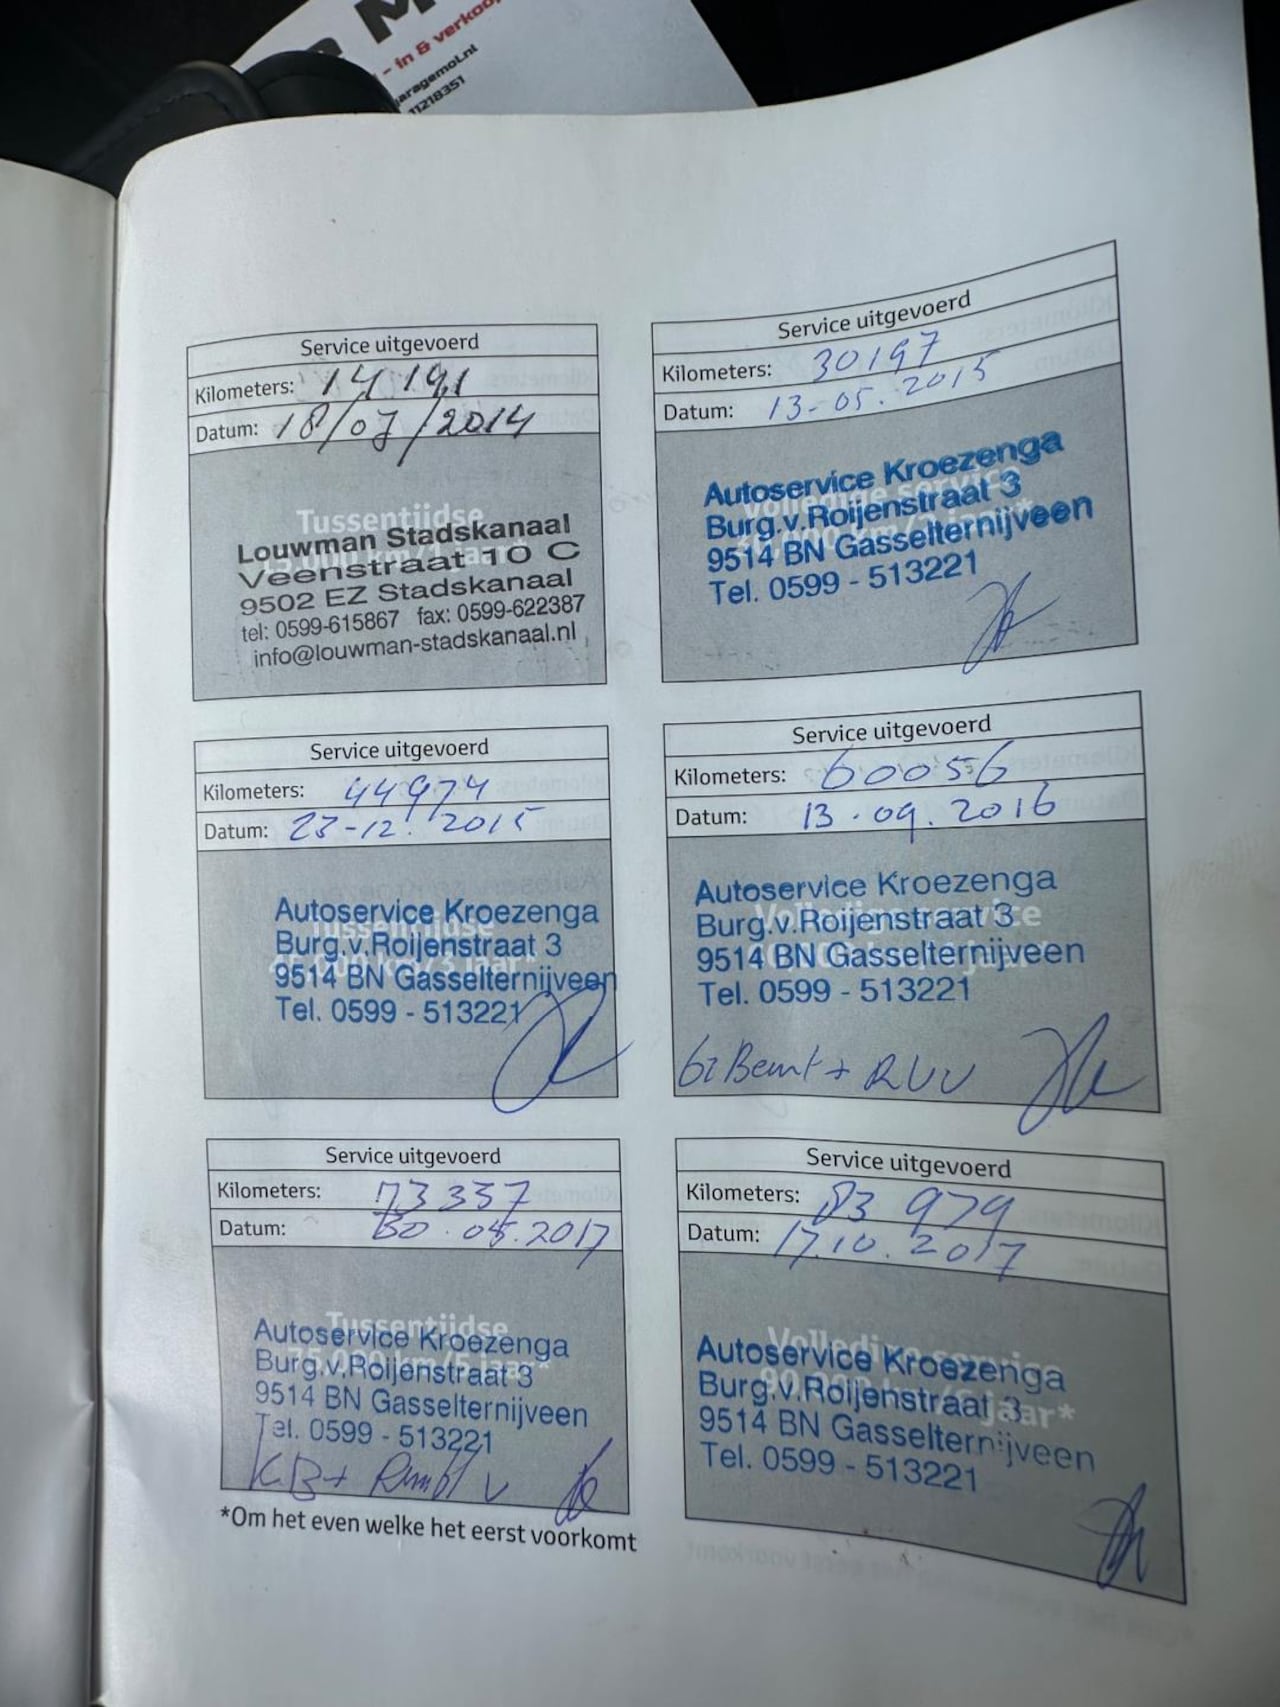 - in & verkoop
aragemol.nl
11218351
Service uitgevoerd
Kilometers: 14191
Datum: 18/07/2014
Tussentijdse
Louwman Stadskanaal
Veenstraat 10 C
9502 EZ Stadskanaal
tel: 0599-615867 fax: 0599-622387
info@louwman-stadskanaal.nl
Service uitgevoerd
Kilometers: 30197
Datum: 13-05.2015
Volledige service
Autoservice Kroezenga
Burg.v.Roijenstraat 3
9514 BN Gasselternijveen
Tel. 0599 - 513221
Service uitgevoerd
Kilometers: 44974
Datum: 23-12.2015
Tussentijdse
Autoservice Kroezenga
Burg.v.Roijenstraat 3
9514 BN Gasselternijveen
Tel. 0599 - 513221
Service uitgevoerd
Kilometers: 60056
Datum: 13.09.2016
Volledige service
Autoservice Kroezenga
Burg.v.Roijenstraat 3
9514 BN Gasselternijveen
Tel. 0599 - 513221
+ RVV
Service uitgevoerd
Kilometers: 73337
Datum: 30.05.2017
Tussentijdse
75.000 km/5 jaar*
Autoservice Kroezenga
Burg.v.Roijenstraat 3
9514 BN Gasselternijveen
Tel. 0599 - 513221
Service uitgevoerd
Kilometers: 83979
Datum: 17.10.2017
Volledige service
jaar*
Autoservice Kroezenga
Burg.v.Roijenstraat 3
9514 BN Gasselternijveen
Tel. 0599 - 513221
*Om het even welke het eerst voorkomt